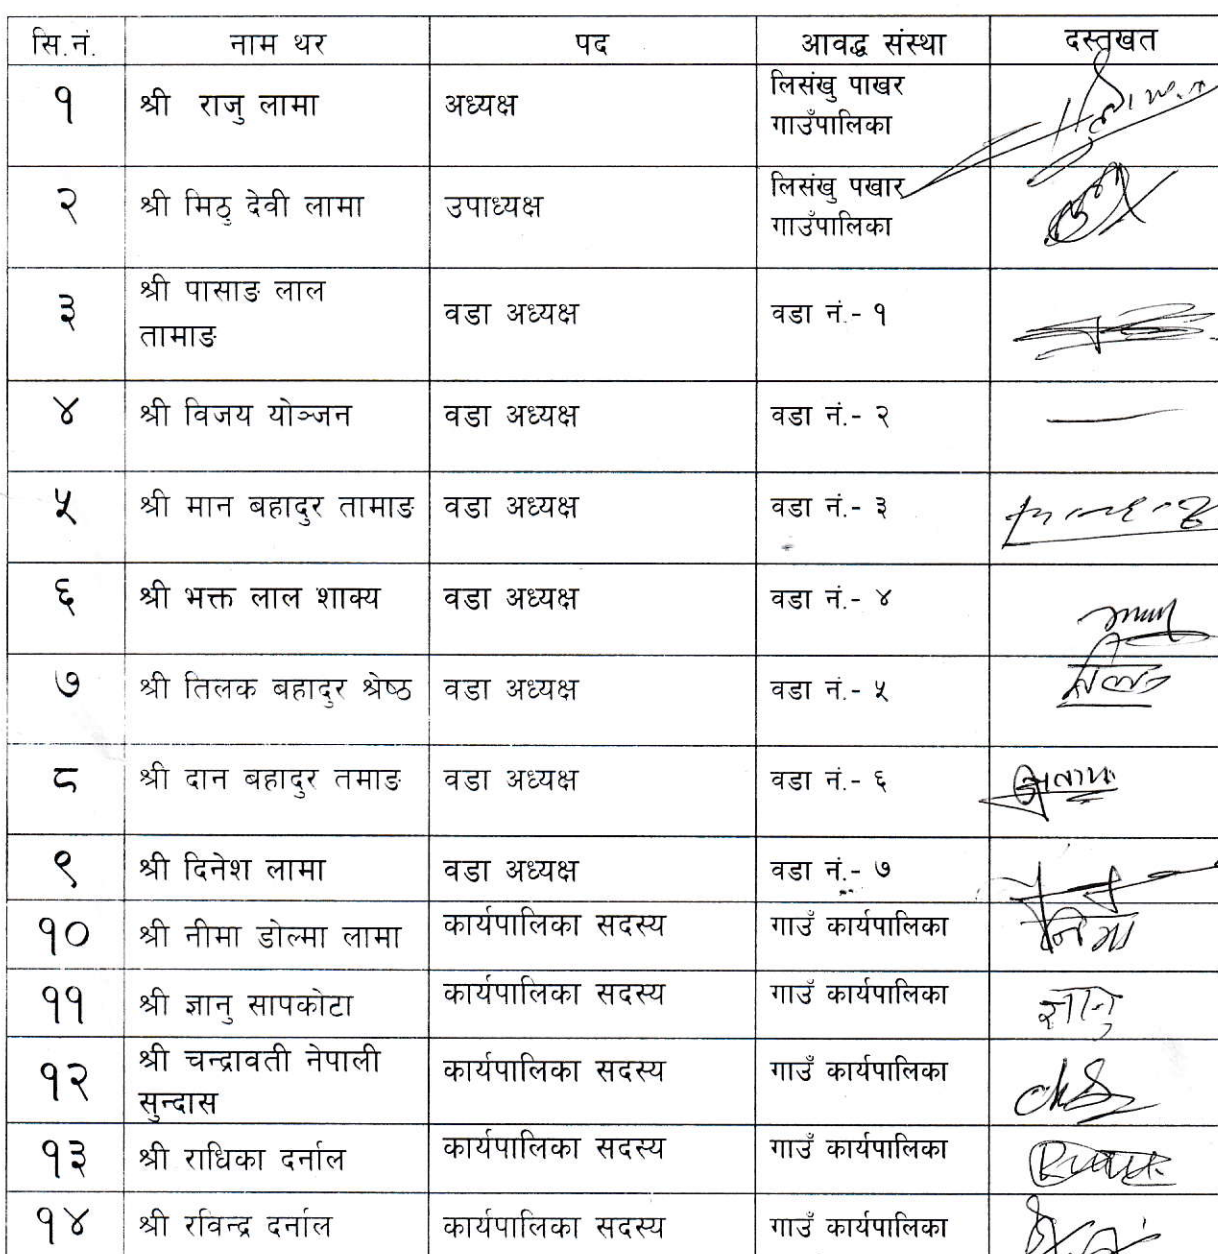 सि.नं. नाम थर पद आवद्ध संस्था दस्तखत
१ श्री राजु लामा अध्यक्ष लिसंखु पाखर
गाउँपालिका
२ श्री मिठु देवी लामा उपाध्यक्ष लिसंखु पखार
गाउँपालिका
३ श्री पासाङ लाल
तामाङ वडा अध्यक्ष वडा नं.- १
४ श्री विजय योञ्जन वडा अध्यक्ष वडा नं.- २
५ श्री मान बहादुर तामाङ वडा अध्यक्ष वडा नं.- ३
६ श्री भक्त लाल शाक्य वडा अध्यक्ष वडा नं.- ४
७ श्री तिलक बहादुर श्रेष्ठ वडा अध्यक्ष वडा नं.- ५
८ श्री दान बहादुर तमाङ वडा अध्यक्ष वडा नं.- ६
९ श्री दिनेश लामा वडा अध्यक्ष वडा नं.- ७
१० श्री नीमा डोल्मा लामा कार्यपालिका सदस्य गाउँ कार्यपालिका
११ श्री ज्ञानु सापकोटा कार्यपालिका सदस्य गाउँ कार्यपालिका ज्ञानु
१२ श्री चन्द्रावती नेपाली
सुन्दास कार्यपालिका सदस्य गाउँ कार्यपालिका
१३ श्री राधिका दर्नाल कार्यपालिका सदस्य गाउँ कार्यपालिका
१४ श्री रविन्द्र दर्नाल कार्यपालिका सदस्य गाउँ कार्यपालिका